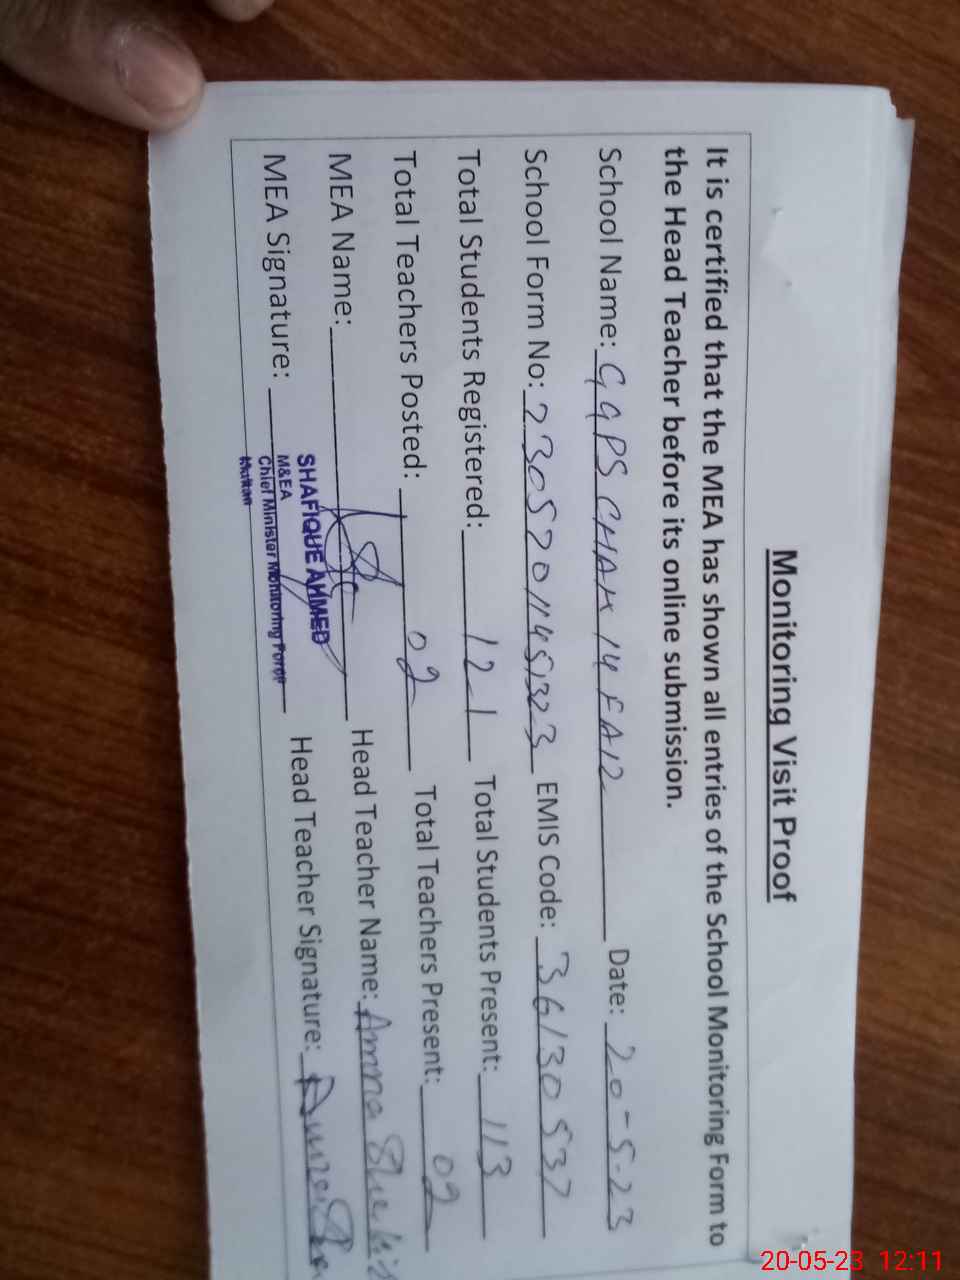 Monitoring Visit Proof
It is certified that the MEA has shown all entries of the School Monitoring Form to
the Head Teacher before its online submission.
School Name: GGPS CHAK 14 FAIZ Date: 20-5-23
School Form No: 2305201145323 EMIS Code: 36130537
Total Students Registered: 121 Total Students Present: 113
Total Teachers Posted: 02 Total Teachers Present: 02
MEA Name: Head Teacher Name: Amna
MEA Signature: Head Teacher Signature:
SHAFIQUE AHMED
M&EA
Chief Minister Monitoring Force
Multan
20-05-23 12:11